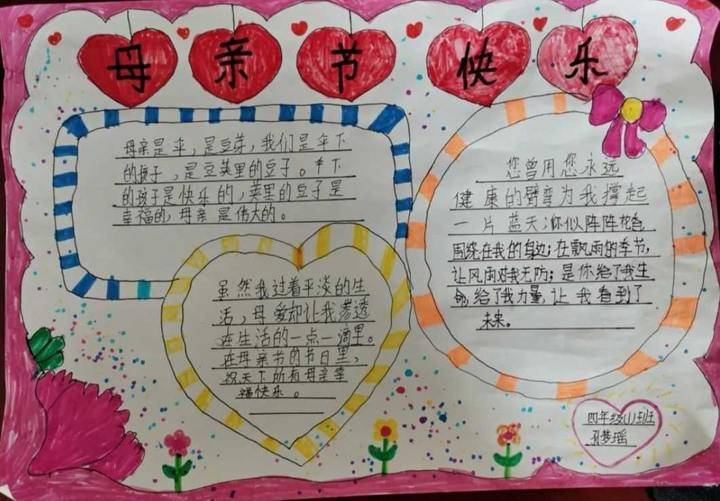 母亲节快乐
母亲是伞，是豆芽，我们是伞下
的孩子，是豆荚里的豆子。伞下
的孩子是快乐的，荚里的豆子是
幸福的，母亲是伟大的。
您曾用您永远
健康的臂弯为我撑起
一片蓝天；你似阵阵花香
围绕在我的身边；在飘雨的季节，
让风雨对我无防；是你给了我生
命给了我力量，让我看到了
未来。
虽然我过着平淡的生
活，母爱却让我渗透
在生活的一点一滴里。
在母亲节的节日里，
祝天下所有母亲幸
福快乐。
四年级(1)班
孔梦瑶